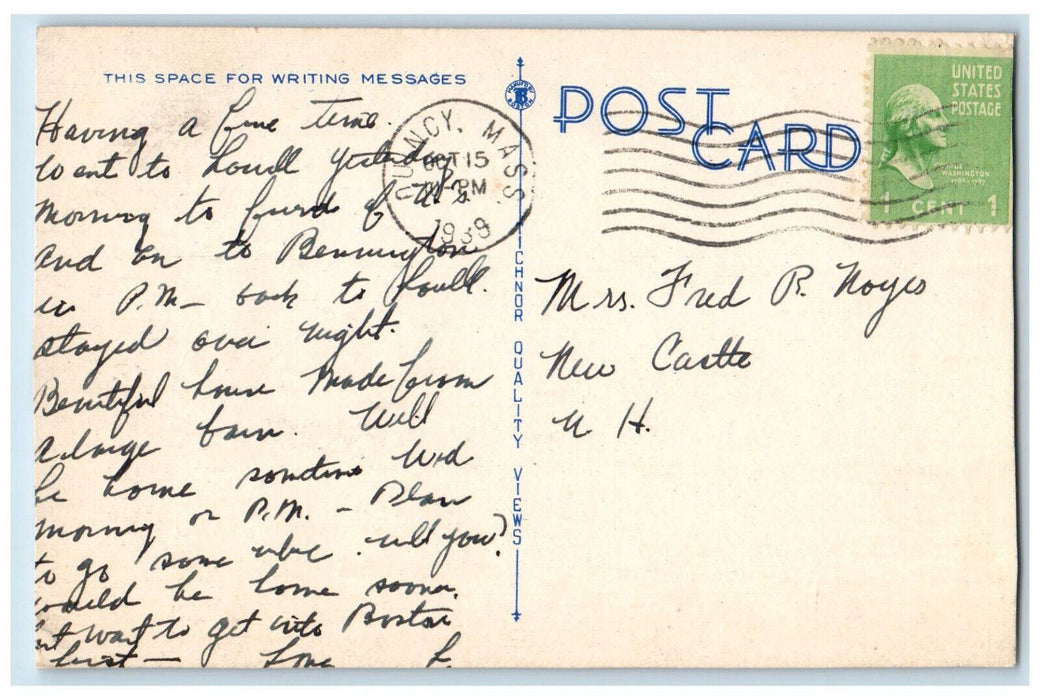 THIS SPACE FOR WRITING MESSAGES
Having a fine time.
Went to Lowell yesterday
morning to friend of
and on to Bennington
in P.M. – back to Lowell.
stayed over night.
Beautiful house made from
a large barn. Will
be home sometime Wed
morning or P.M. – Plan
to go some where will you?
would be home sooner.
but want to get into Boston
first – Love L.
QUINCY, MASS.
OCT 15
PM
1939
TICHNOR QUALITY VIEWS
POST
CARD
UNITED
STATES
POSTAGE
WASHINGTON
1789-1797
1 CENT 1
Mrs. Fred R. Noyes
New Castle
N H.